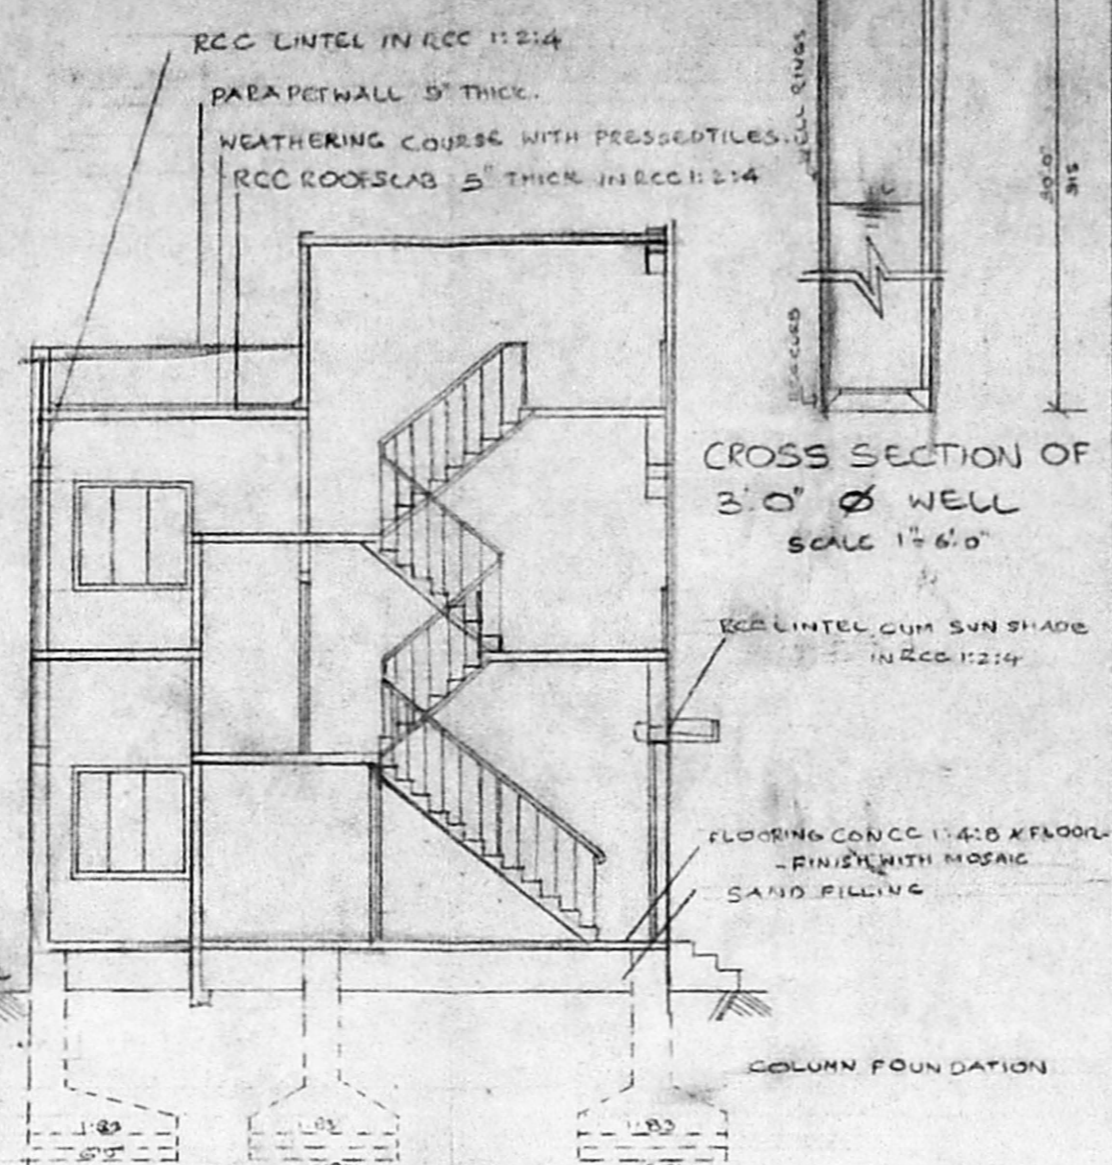 RCC LINTEL IN RCC 1:2:4
PARAPETWALL 9" THICK.
WEATHERING COURSE WITH PRESSEDTILES.
RCC ROOFSLAB 5" THICK IN RCC 1:2:4
WELL RINGS
30'.0"
915
CROSS SECTION OF
3'.0" Ø WELL
SCALE 1"= 6'.0"
RCC LINTEL CUM SUN SHADE
IN RCC 1:2:4
FLOORING CONCC 1:4:8 & FLOOR-
-FINISH WITH MOSAIC
SAND FILLING
COLUMN FOUNDATION
1·83
1·83
1·83